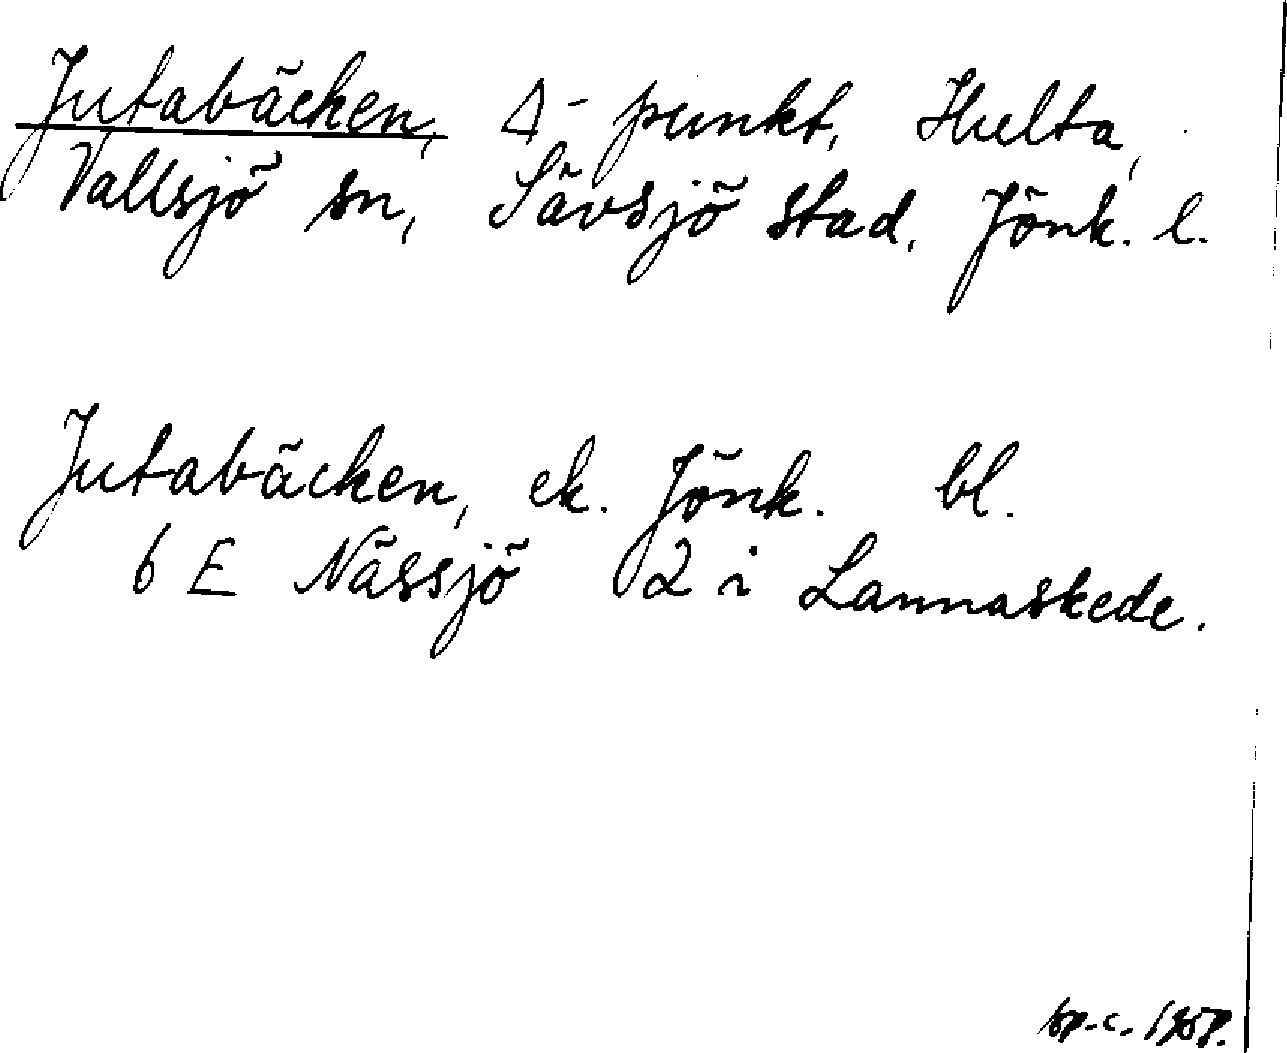 Jutabäcken, Δ-punkt, Hulta,
Vallsjö sn, Sävsjö stad, Jönk. l.
Jutabäcken, ek. Jönk. bl.
6 E Nässjö 02 i Lannaskede.